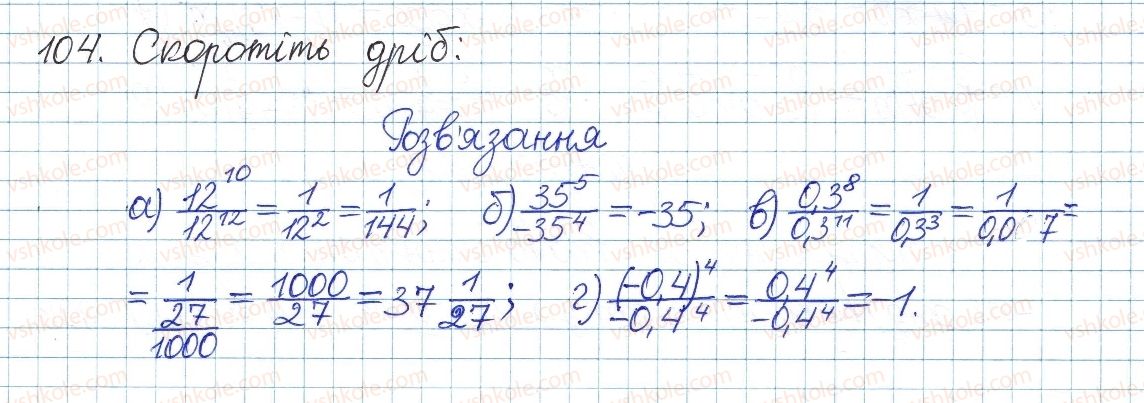 104. Скоротіть дріб:
Розв'язання
а) 12^10/12^12 = 1/12^2 = 1/144; б) 35^5/-35^4 = -35; в) 0,3^8/0,3^11 = 1/0,3^3 = 1/0,0 7 =
= 1/(27/1000) = 1000/27 = 37 1/27; г) (-0,4)^4/-0,4^4 = 0,4^4/-0,4^4 = -1.